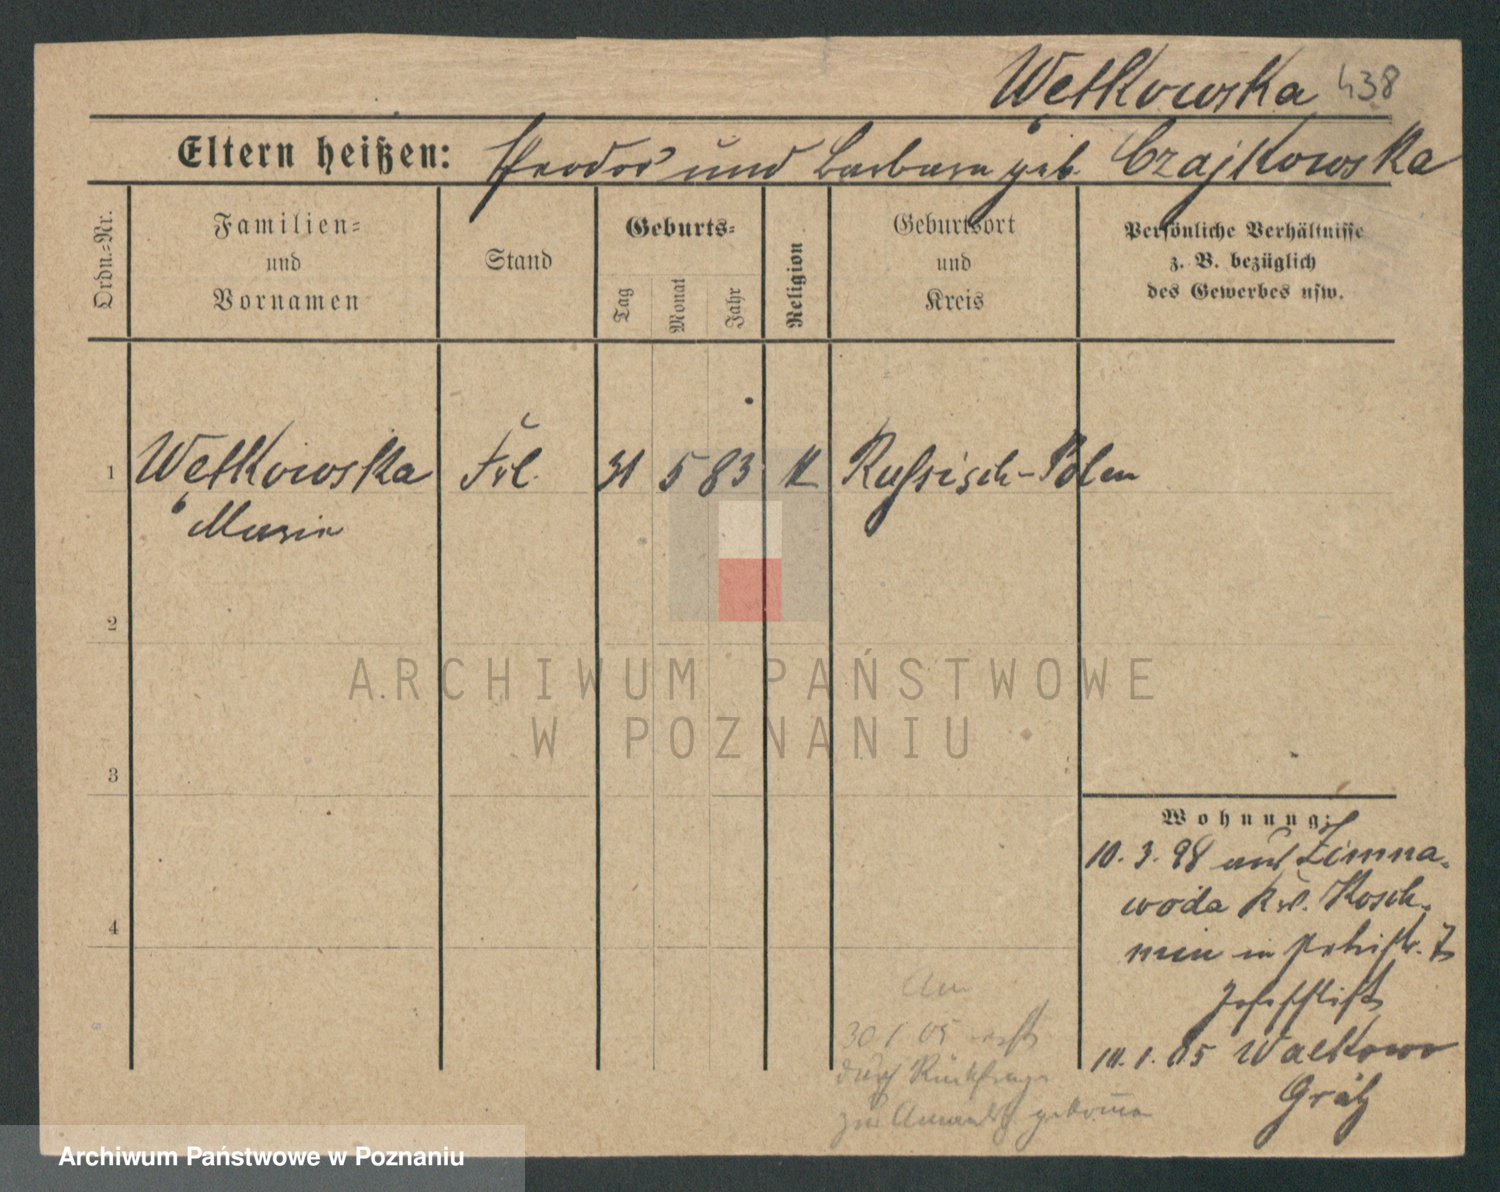 Wętkowska 438
Eltern heißen: Theodor und Barbara geb. Czajkowska
Ordn.-Nr.
Familien=
und
Vornamen
Stand
Geburts=
Tag
Monat
Jahr
Religion
Geburtsort
und
Kreis
Persönliche Verhältnisse
z. B. bezüglich
des Gewerbes usw.
1 Wętkowska Frl. 31 5 83 K Russisch-Polen
Maria
2
ARCHIWUM PAŃSTWOWE
W POZNANIU
3
Wohnung:
10. 3. 98 aus Zimna-
woda Krs. Kosch-
min in Petristr. 7
Josefstift
4
Am
30 1 05
durch Rückfrage
zur
10. 1. 05 Watkowo
Grätz
Archiwum Państwowe w Poznaniu